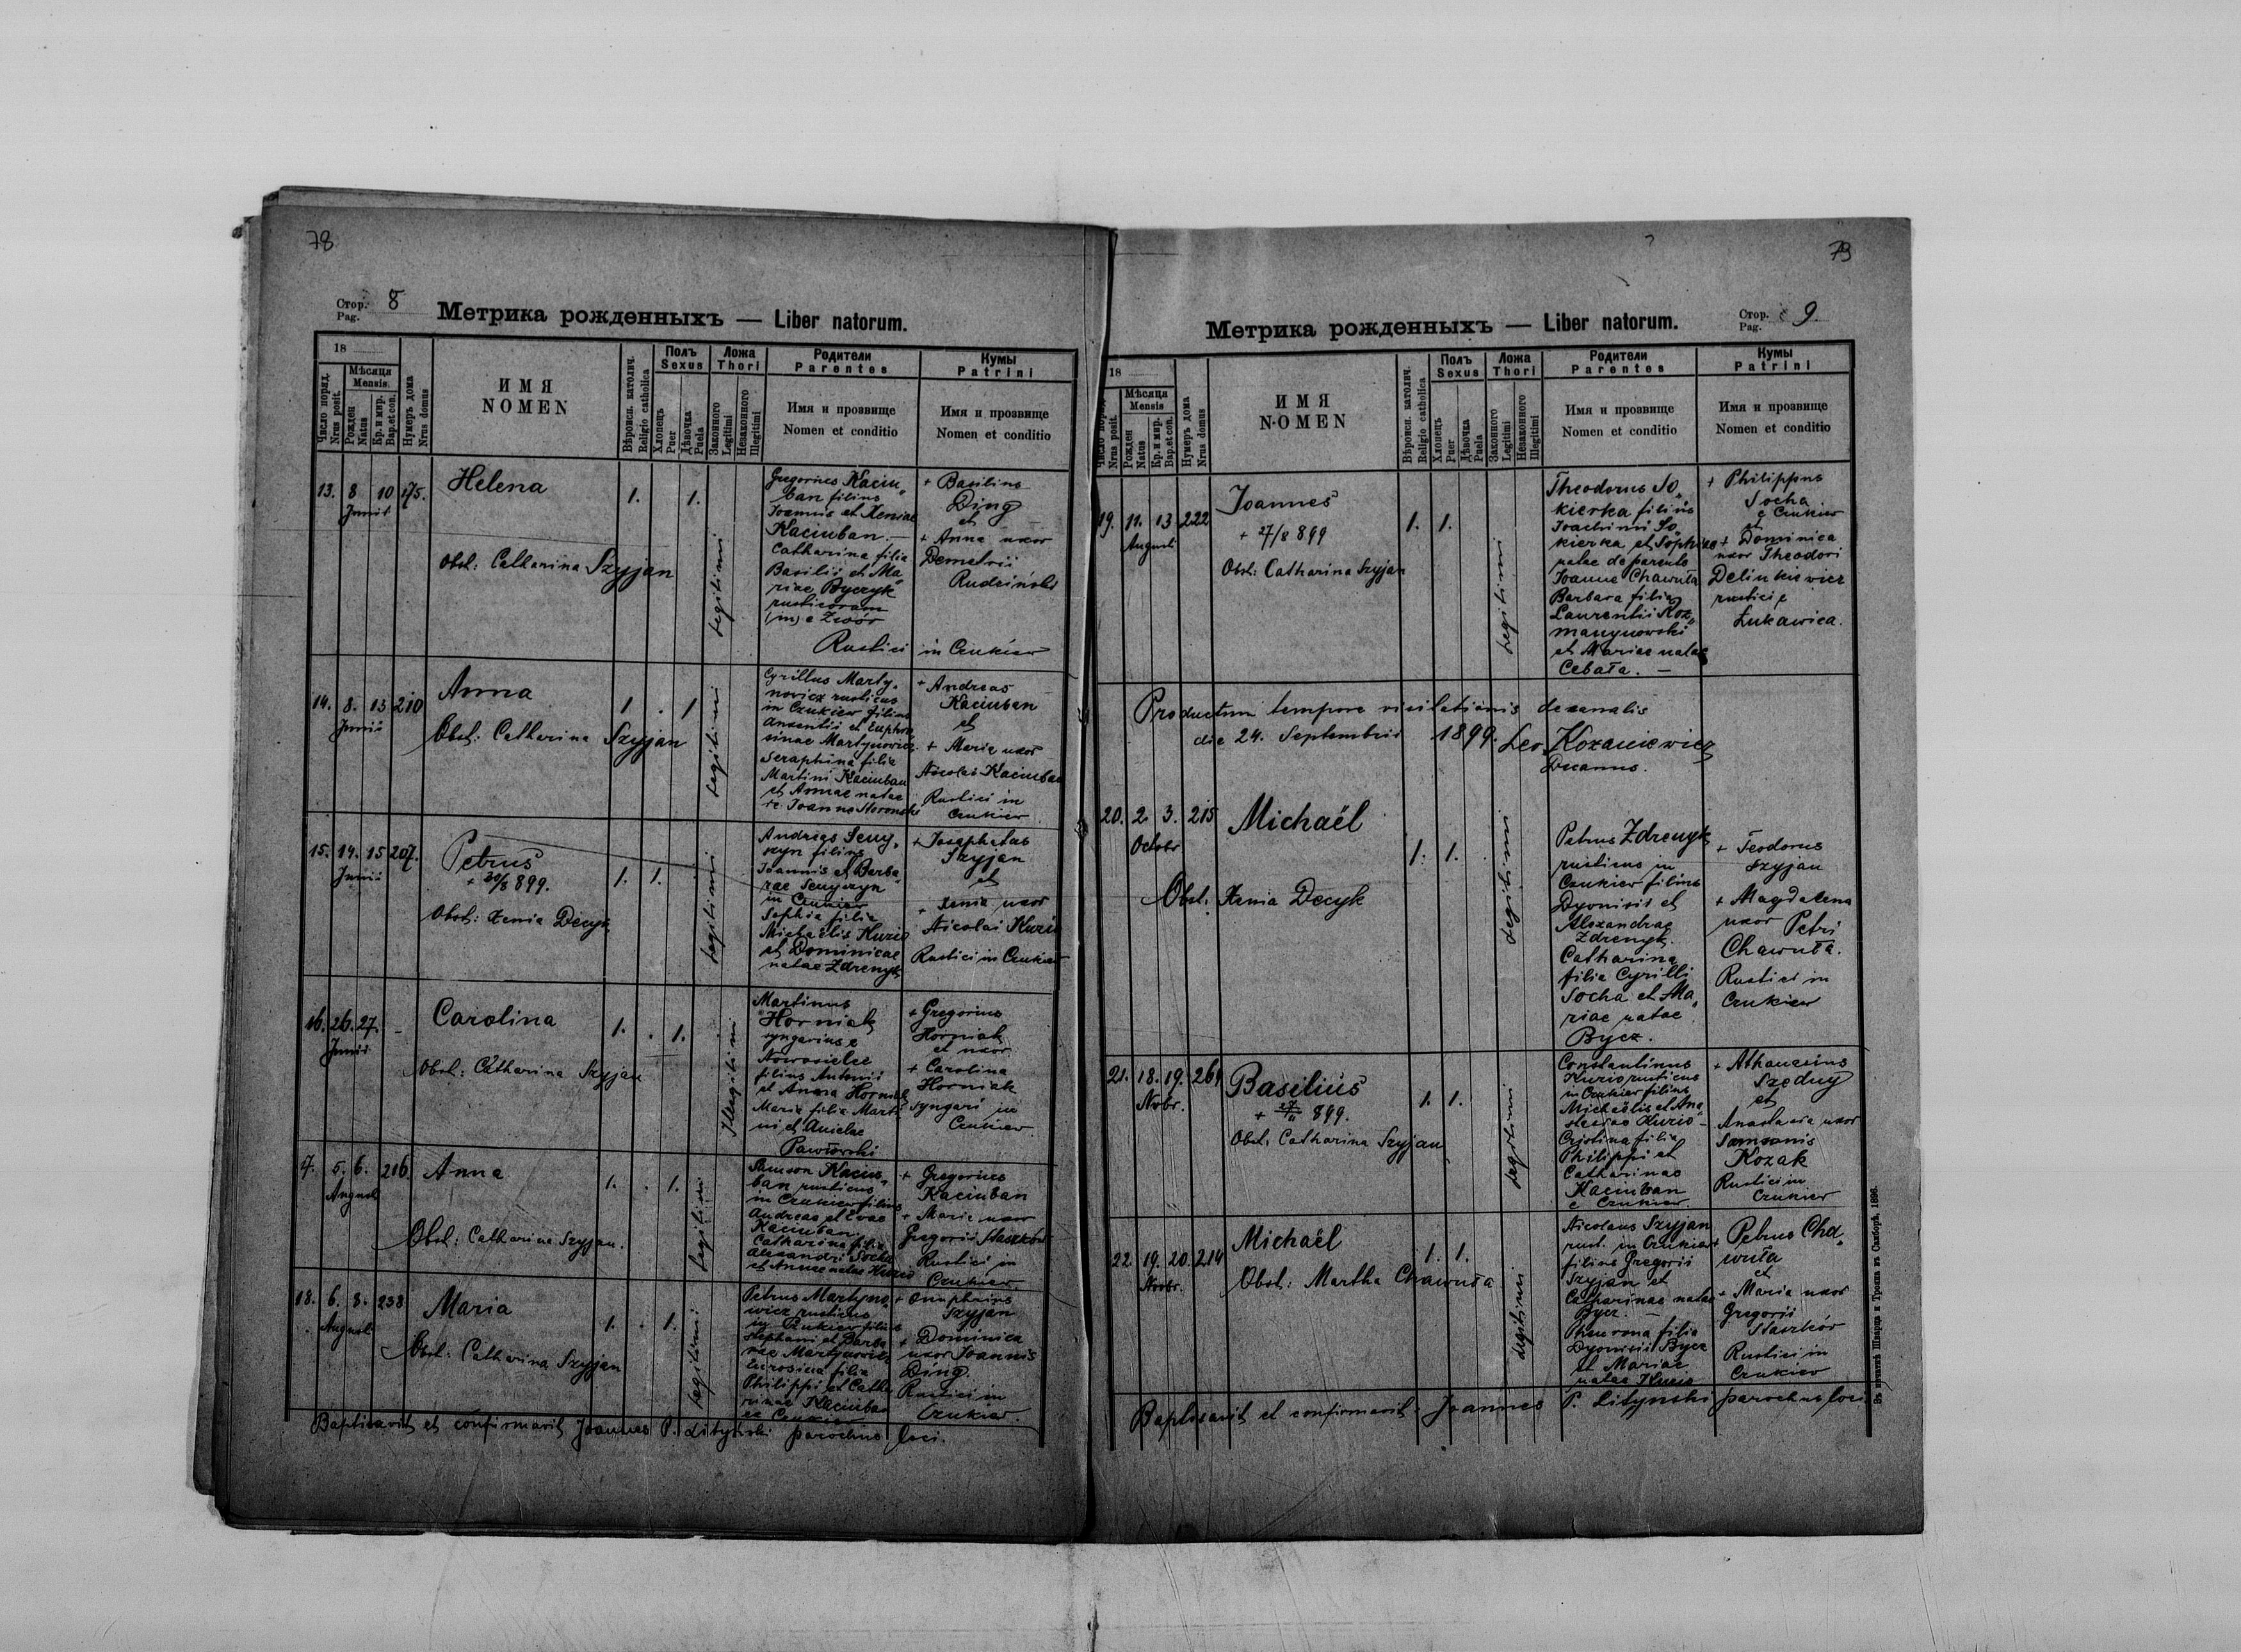 78
Стор. Pag. 8
Метрика рожденныхъ — Liber natorum.
18
Число поряд. Nrus posit.
Мѣсяца Mensis.
Рожден Natus
Кр. и мир. Bap. et con.
Нумеръ дома Nrus domus
ИМЯ NOMEN
Вѣроисп. католич. Religio catholica
Полъ Sexus
Хлопецъ Puer
Дѣвочка Puela
Ложа Thori
Законного Legitimi
Незаконного Illegitimi
Родители Parentes
Имя и прозвище
Nomen et conditio
Кумы Patrini
Имя и прозвище
Nomen et conditio
13. 8 10 175.
Junii
Helena
1. 1.
Obst: Catharina Szyjan
legitimi
Gregorius Kaciu„
ban filius
Joannis et Xeniae
Kaciuban. —
Catharina filia
Basilii et Ma„
riae Byczyk
rusticorum
(m) e Zwór
Rustici
+ Basilius
Ding
et
+ Anna uxor
Demetrii
Rudziński
in Czukiew
14. 8. 13 210
Junii
Anna
1 . 1
Obst: Catharina Szyjan
legitimi
Cyrillus Marty„
novicz rusticus
in Czukiew filius
Auxentii et Euphro
sinae Martynowicz
Seraphina filia
Martini Kaciuban
et Annae natae
Joanne
+ Andreas
Kaciuban
et
+ Maria uxor
Nicolai Kaciuban
Rustici in
Czukiew
15. 14. 15 207.
Junii
Petrus
+ 30/8 899.
1. 1.
Obst: Xenia Decyk
legitimi
Andreas
filius
Joannis et Barba„
rae
in Czukiew
Sophia filia
Michaëlis Kurio
et Dominicae
natae Zdrenyk
+ Josaphatus
Szyjan
et
+ Xenia uxor
Nicolai Kurio
Rustici in Czukiew
16. 26. 27. -
Junii
Carolina
1. . 1.
Obst: Catharina Szyjan
Illegitimi
Martinus
Horniak
syngarius e
Nowosielce
filius Antonii
et Anna Horniak
Maria filia Marti
ni et Anielae
Pawłowski
+ Gregorius
Horniak
et uxor
+ Carolina
Horniak
Syngari in
Czukiew
17. 5. 6. 216.
August
Anna
1. . 1.
Obst: Catharina Szyjan.
legitimi
Samson Kaciu„
ban rusticus
in Czukiew filius
Andreae et Evae
Kaciuban.
Catharina filia
Alexandri Socha
et Annae natae Kurio
+ Gregorius
Kaciuban
+ Maria uxor
Gregorii Staszków
Rustici in
Czukiew
18. 6. 8. 238
August
Maria
1. . 1.
Obst: Catharina Szyjan
legitimi
Petrus Martyno„
wicz rusticus
in Czukiew filius
Stephani et Barba
rae Martynowicz
Eurosina filia
Philippi et Catha
rinae Kaciuban
ex Czukiew
+ Onuphrius
Szyjan
+ Dominica
uxor Joannis
Ding.
Rustici in
Czukiew.
Baptisavit et confirmavit Joannes P. Litynski parochus loci.
79
Стор. Pag. 9.
Метрика рожденныхъ — Liber natorum.
18
Число поряд. Nrus posit.
Мѣсяца Mensis
Рожден Natus
Кр. и мир. Bap. et con.
Нумеръ дома Nrus domus
ИМЯ NOMEN
Вѣроисп. католич. Religio catholica
Полъ Sexus
Хлопецъ Puer
Дѣвочка Puela
Ложа Thori
Законного Legitimi
Незаконного Illegitimi
Родители Parentes
Имя и прозвище
Nomen et conditio
Кумы Patrini
Имя и прозвище
Nomen et conditio
19. 11. 13 222
Augusti
Joannes
+ 27/8 899
1. 1.
Obst: Catharina Szyjan
legitimi
Theodorus So„
kierka filius
Joachimi So„
kierka et Sophiae
natae de parente
Joanne Chawuła
Barbara filia
Laurentii Roz„
manynowski
et Mariae natae
Cebała. —
+ Philippus
Socha
e Czukiew
et
+ Dominica
uxor Theodori
Delinkiewicz
rustici e
Łukawica.
Productum tempore visitationis decanalis
die 24. Septembris 1899. Leo Kozaniewicz
Decanus.
20. 2. 3. 215
Octobr
Michaël
1. 1.
Obst. Xenia Decyk
legitimi
Petrus Zdrenyk
rusticus in
Czukiew filius
Dyonisii et
Alexandrae
Zdrenyk.
Catharina
filia Cyrilli
Socha et Ma„
riae natae
Bycz.
+ Teodorus
Szyjan
+ Magdalena
uxor Petri
Chawuła.
Rustici in
Czukiew
21. 18. 19. 261
Novbr.
Basilius
+ 27/11 899.
1. 1.
Obst. Catharina Szyjan
legitimi
Constantinus
Kurio rusticus
in Czukiew filius
Michaëlis et Ana„
stasiae Kurio —
Cristina filia
Philippi et
Catharinae
Kaciuban
e Czukiew.
+ Athanasius
Szedny
et
Anastasia uxor
Samsonis
Kozak
Rustici in
Czukiew
22. 19. 20. 214
Novbr.
Michaël
1. 1.
Obst: Martha Chawuła
legitimi
Nicolaus Szyjan
rust. in Czukiew
filius Gregorii
Szyjan et
Catharinae natae
Bycz. —
filia
Dyonisii Bycz
et Mariae
natae Kurio
+ Petrus Cha„
wuła
et
+ Maria uxor
Gregorii
Staszków
Rustici in
Czukiew
Baptisavit et confirmavit Joannes P. Litynski parochus loci
Въ печатнѣ Шварца и Трояна въ Самборѣ, 1896.